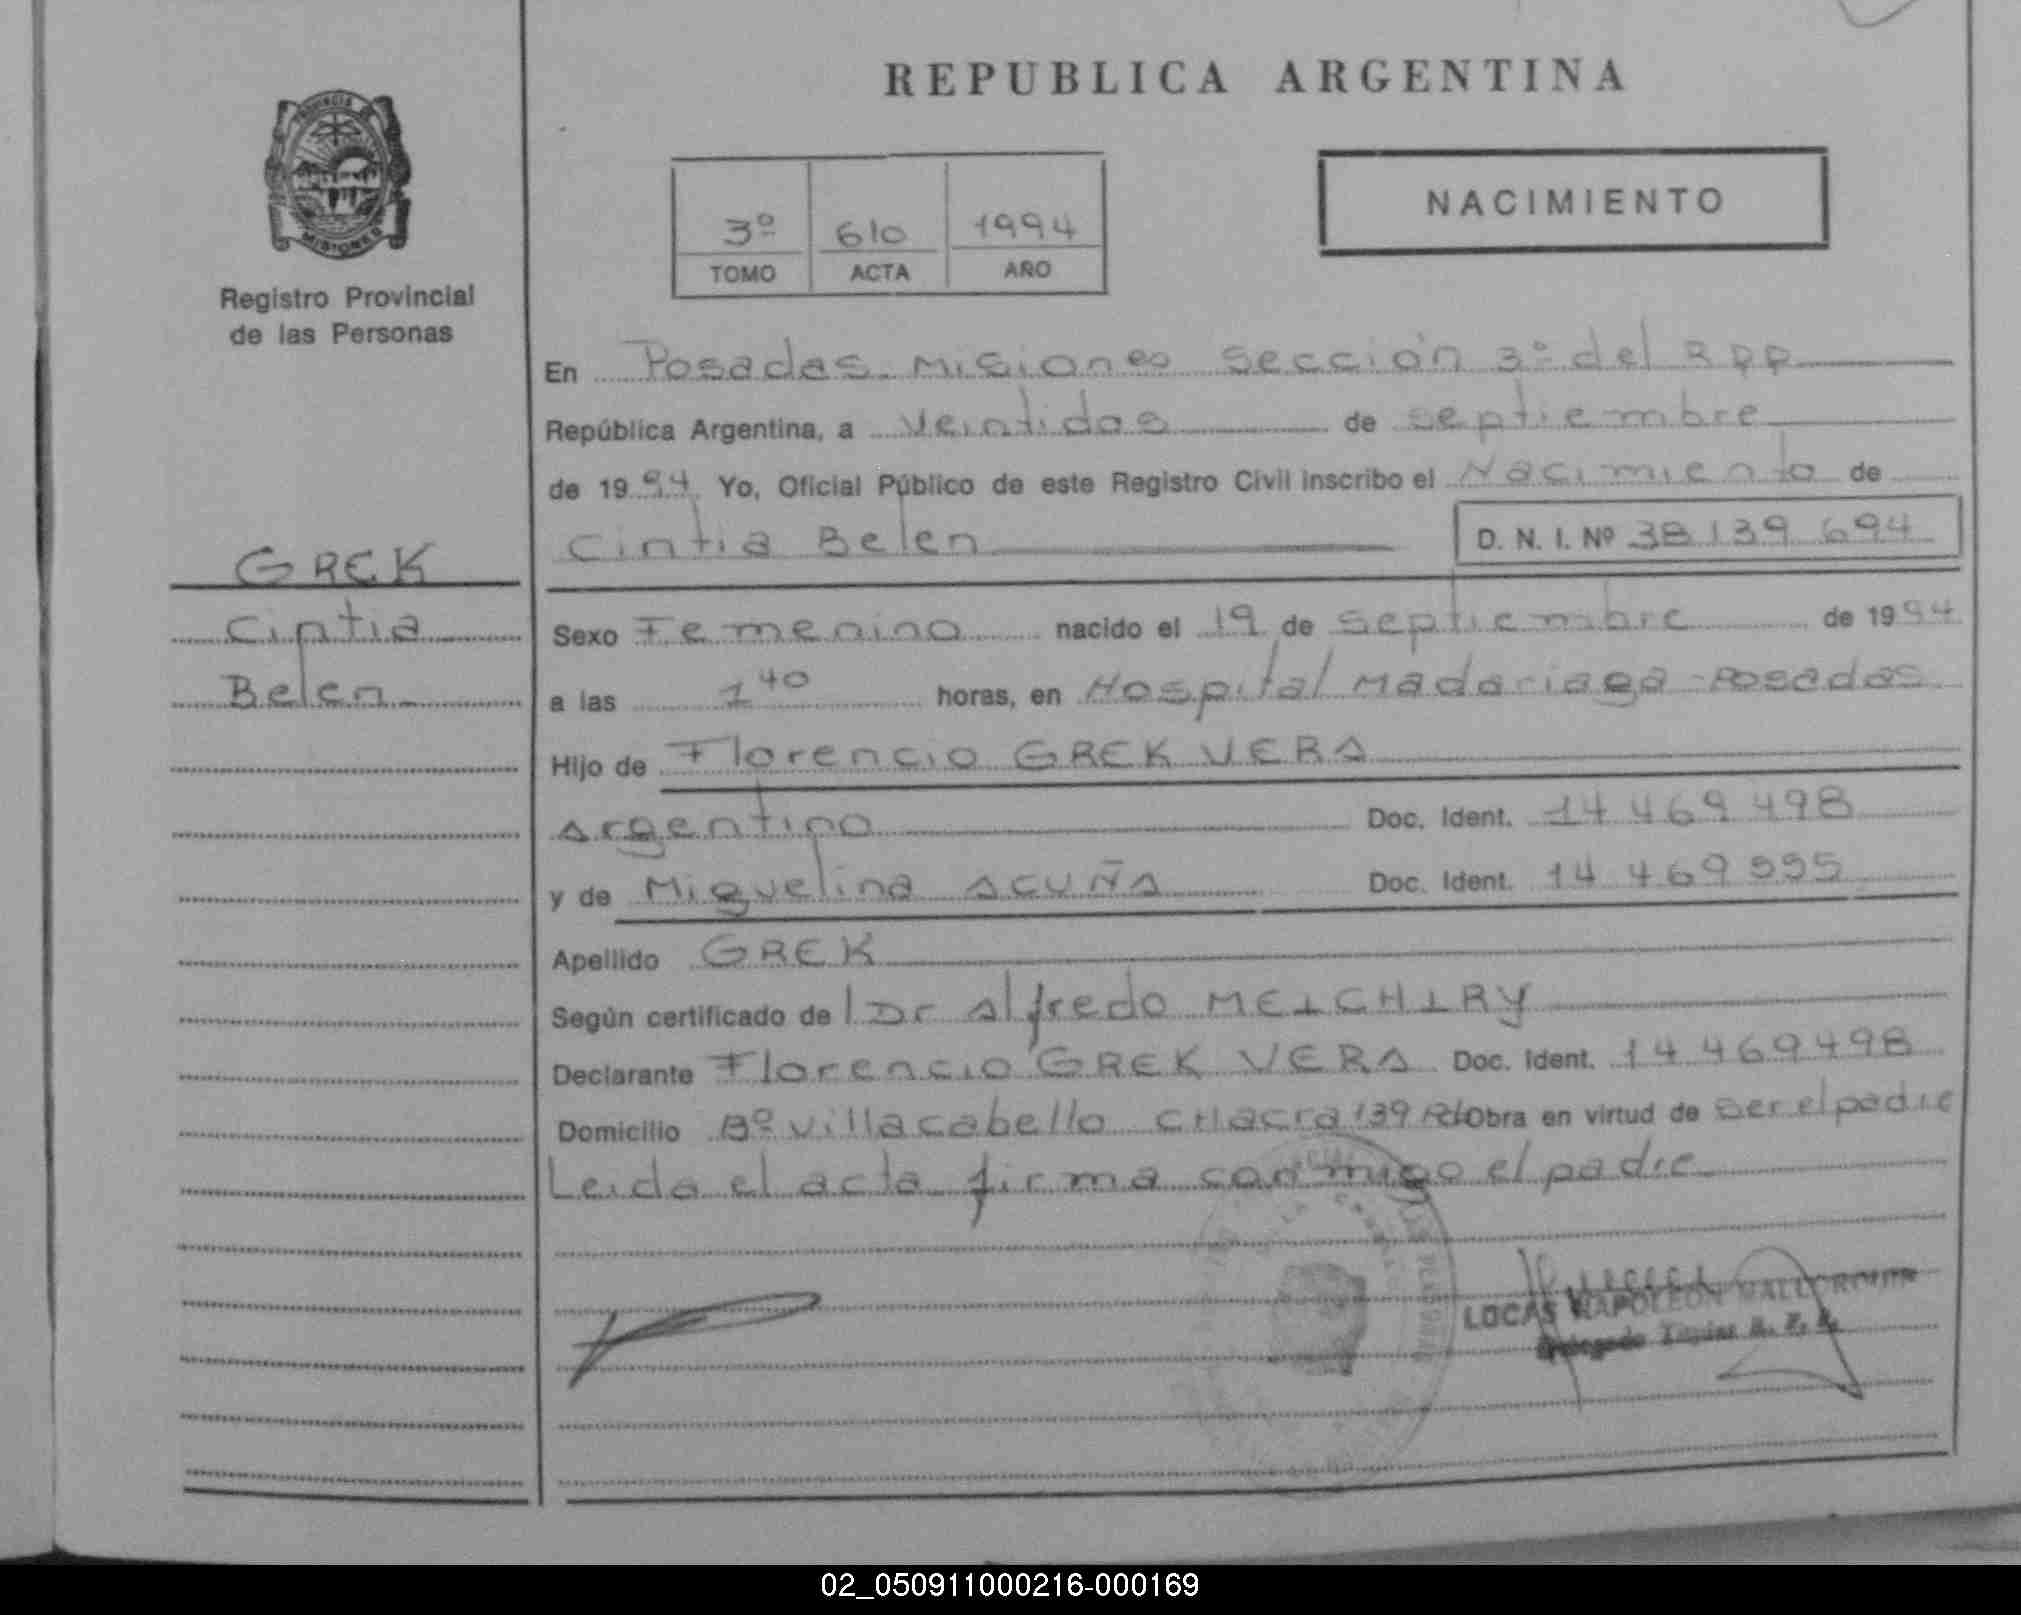 REPUBLICA ARGENTINA
PROVINCIA DE
MISIONES
Registro Provincial
de las Personas
3º 610 1994
TOMO ACTA AÑO
NACIMIENTO
En Posadas Misiones Sección 3º del RPP
República Argentina, a Veintidos de septiembre
de 1994 Yo, Oficial Público de este Registro Civil inscribo el Nacimiento de
Cintia Belen D. N. I. Nº 38 139 694
GREK
Cintia
Belen
Sexo Femenino nacido el 19 de septiembre de 1994
a las 1 40 horas, en Hospital Madariaga - Posadas
Hijo de Florencio GREK VERA
Argentino Doc. Ident. 14 469 498
y de Miguelina ACUÑA Doc. Ident. 14 469 555
Apellido GREK
Según certificado de l Dr Alfredo
Declarante Florencio GREK VERA Doc. Ident. 14 469 498
Domicilio Bº Villa cabello CHacra 139 Obra en virtud de ser el padre
Leida el acta firma conmigo el padre
LOCAS NAPOLEON
Delegado Titular
02_050911000216-000169